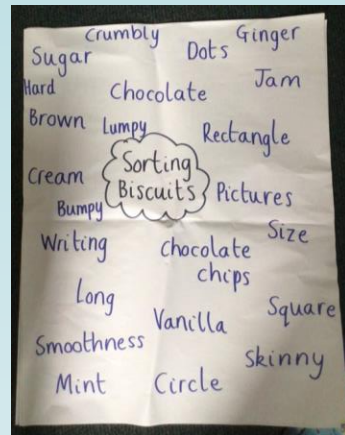 Crumbly
Ginger
Sugar
Dots
Hard
Chocolate
Jam
Brown
Lumpy
Rectangle
Sorting
Biscuits
Cream
Pictures
Bumpy
Size
Writing
Chocolate
chips
Long
Vanilla
Square
Smoothness
Skinny
Mint
Circle